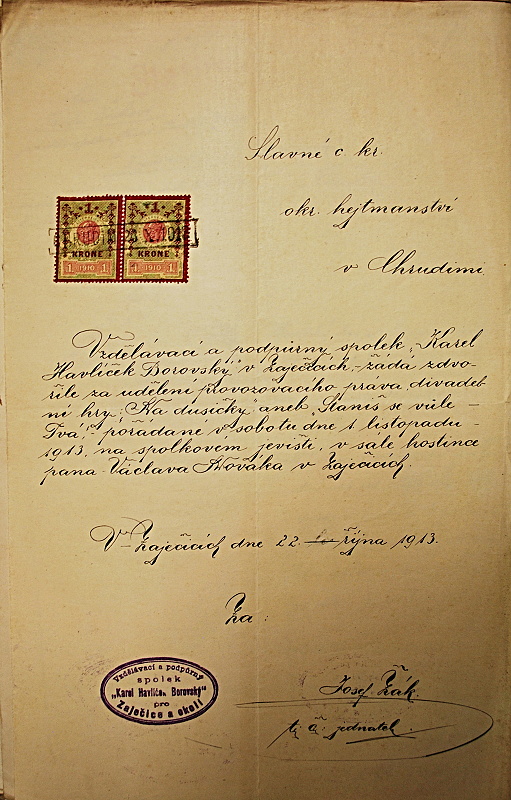 Slavné c. kr.
okr. hejtmanství
v Chrudimi
1 1
KRONE KRONE
1 1910 1 1 1910 1
Vzdělávací a podpůrný spolek „Karel
Havlíček Borovský" v Zaječicích, žádá zdvo-
řile za udělení provozovacího práva divadel-
ní hry: „Na dušičky" aneb „Staniž se vůle
Tvá", pořádané v sobotu dne 1 listopadu
1913, na spolkovém jevišti, v sále hostince
pana Václava Nováka v Zaječicích.
V Zaječicích dne 22. října 1913.
Za:
Vzdělávací a podpůrný
spolek
„Karel Havlíček Borovský"
pro
Zaječice a okolí
Josef Žák
t. č. jednatel.